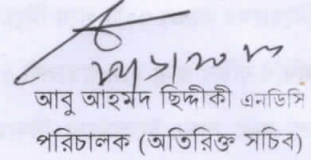 আবু আহমদ ছিদ্দীকী এনডিসি
পরিচালক (অতিরিক্ত সচিব)